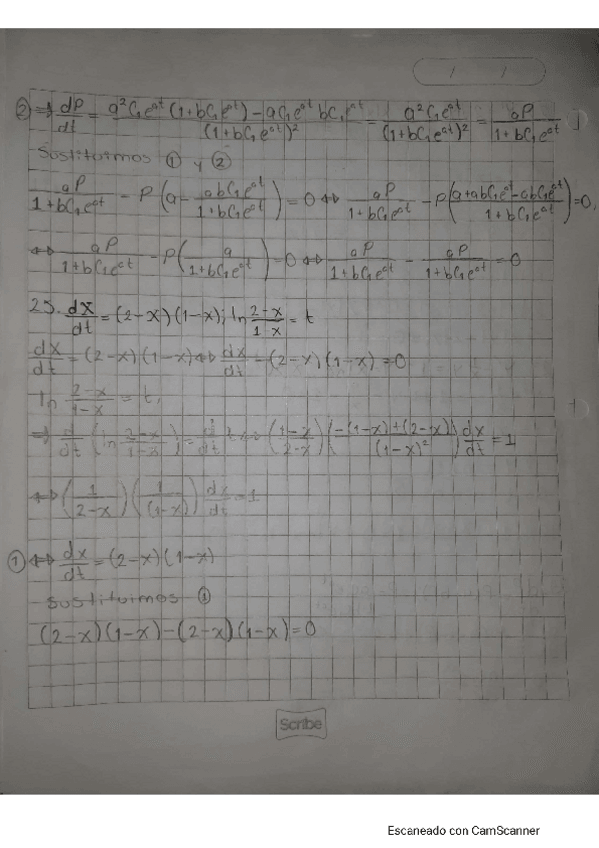 / /
② ⇒ dP/dt = (a²C₁e^{at}(1+bC₁e^{at}) − aC₁e^{at} bC₁e^{at})/(1+bC₁e^{at})² = a²C₁e^{at}/(1+bC₁e^{at})² = aP/(1+bC₁e^{at})
Sustituimos ① y ②
aP/(1+bC₁e^{at}) − P(a − abC₁e^{at}/(1+bC₁e^{at})) = 0 ⇔ aP/(1+bC₁e^{at}) − P((a+abC₁e^{at}−abC₁e^{at})/(1+bC₁e^{at})) = 0,
⇔ aP/(1+bC₁e^{at}) − P(a/(1+bC₁e^{at})) = 0 ⇔ aP/(1+bC₁e^{at}) − aP/(1+bC₁e^{at}) = 0
25. dX/dt = (2−x)(1−x); ln (2−x)/(1−x) = t
dx/dt = (2−x)(1−x) ⇔ dx/dt − (2−x)(1−x) = 0
ln (2−x)/(1−x) = t,
⇒ d/dt (ln (2−x)/(1−x)) = d/dt t ⇔ ((1−x)/(2−x))((−(1−x)+(2−x))/(1−x)²) dx/dt = 1
⇔ (1/(2−x))(1/(1−x)) dx/dt = 1
① ⇔ dx/dt = (2−x)(1−x)
Sustituimos ①
(2−x)(1−x)−(2−x)(1−x)=0
Scribe
Escaneado con CamScanner